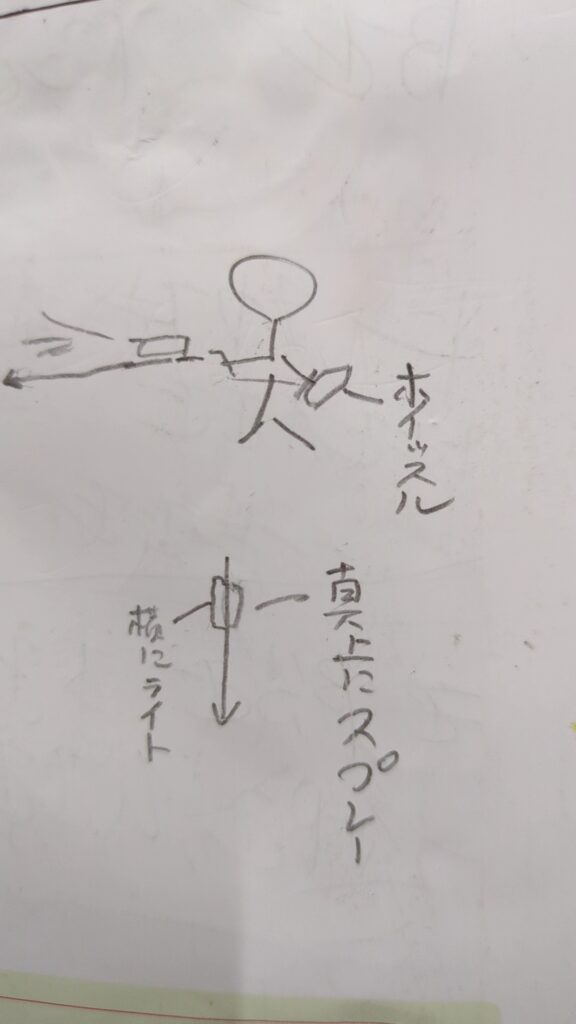 ホイッスル
真上にスプレー
横にライト